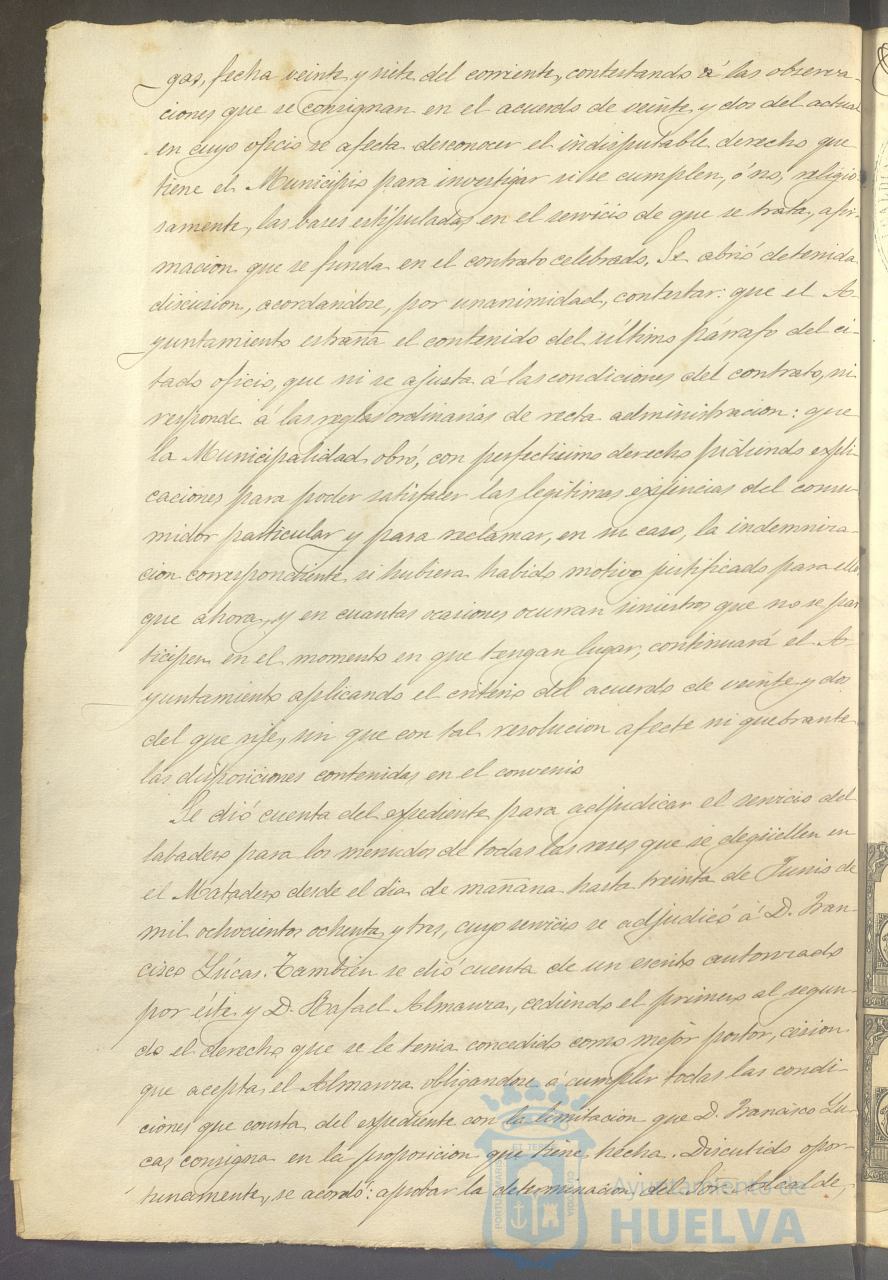 gas, fecha veinte y siete del corriente, contestando á las observa-
ciones que se consignan en el acuerdo de veinte y dos del actual
en cuyo oficio se afecta desconocer el indisputable derecho que
tiene el Municipio para investigar si se cumplen, ó no, religio
samente, las bases estipuladas en el servicio de que se trata, afir-
macion que se funda en el contrato celebrado. Se abrió detenida
discusion, acordandose, por unanimidad, contestar: que el A-
yuntamiento estraña el contenido del último párrafo del ci-
tado oficio, que ni se ajusta á las condiciones del contrato, ni
responde á las reglas ordinarias de recta administracion: que
la Municipalidad obró, con perfectisimo derecho pidiendo espli-
caciones para poder satisfacer las legitimas exijencias del consu-
midor particular y para reclamar, en su caso, la indemniza-
cion correspondiente si hubiera habido motivo justificado para ello
que ahora, y en cuantas ocasiones ocurran siniestros que no se par
ticipen en el momento en que tengan lugar, continuará el A-
yuntamiento aplicando el criterio del acuerdo de veinte y dos
del que rije, sin que con tal resolucion afecte ni quebrante
las disposiciones contenidas en el convenio
Se dió cuenta del espediente para adjudicar el servicio del
labadero para los menudos de todas las reses que se degüellen en
el Matadero desde el dia de mañana hasta treinta de Junio de
mil ochocientos ochenta y tres, cuyo servicio se adjudicó á D. Fran-
cisco Lúcas. Tambien se dió cuenta de un escrito autorizado
por éste y D. Rafael Almanza, cediendo el primero al segun-
do el derecho que se le tenia concedido como mejor postor, cesion
que acepta el Almanza obligandose á cumplir todas las condi-
ciones que consta del espediente con la limitacion que D. Francisco Lu-
cas consigna en la proposicion que tiene hecha. Discutido opor-
tunamente, se acordó: aprobar la determinacion del Sor. Alcalde,
Ayuntamiento de
HUELVA